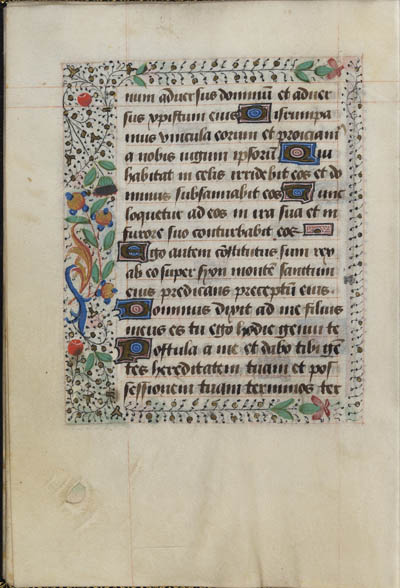 num adversus dominū et adver
sus xpistum eius Disrumpa
mus vincula eorum et proiciam⁹
a nobis iugum ipsorū Qui
habitat in celis irridebit eos et do
minus subsannabit eos Tunc
loquetur ad eos in ira sua et in
furore suo conturbabit eos
Ego autem cōstitutus sum rex
ab eo super syon montē sanctum
eius predicans preceptū eius
Dominus dixit ad me filius
meus es tu ego hodie genui te
Postula a me et dabo tibi gē
tes hereditatem tuam et pos
sessionem tuam terminos ter